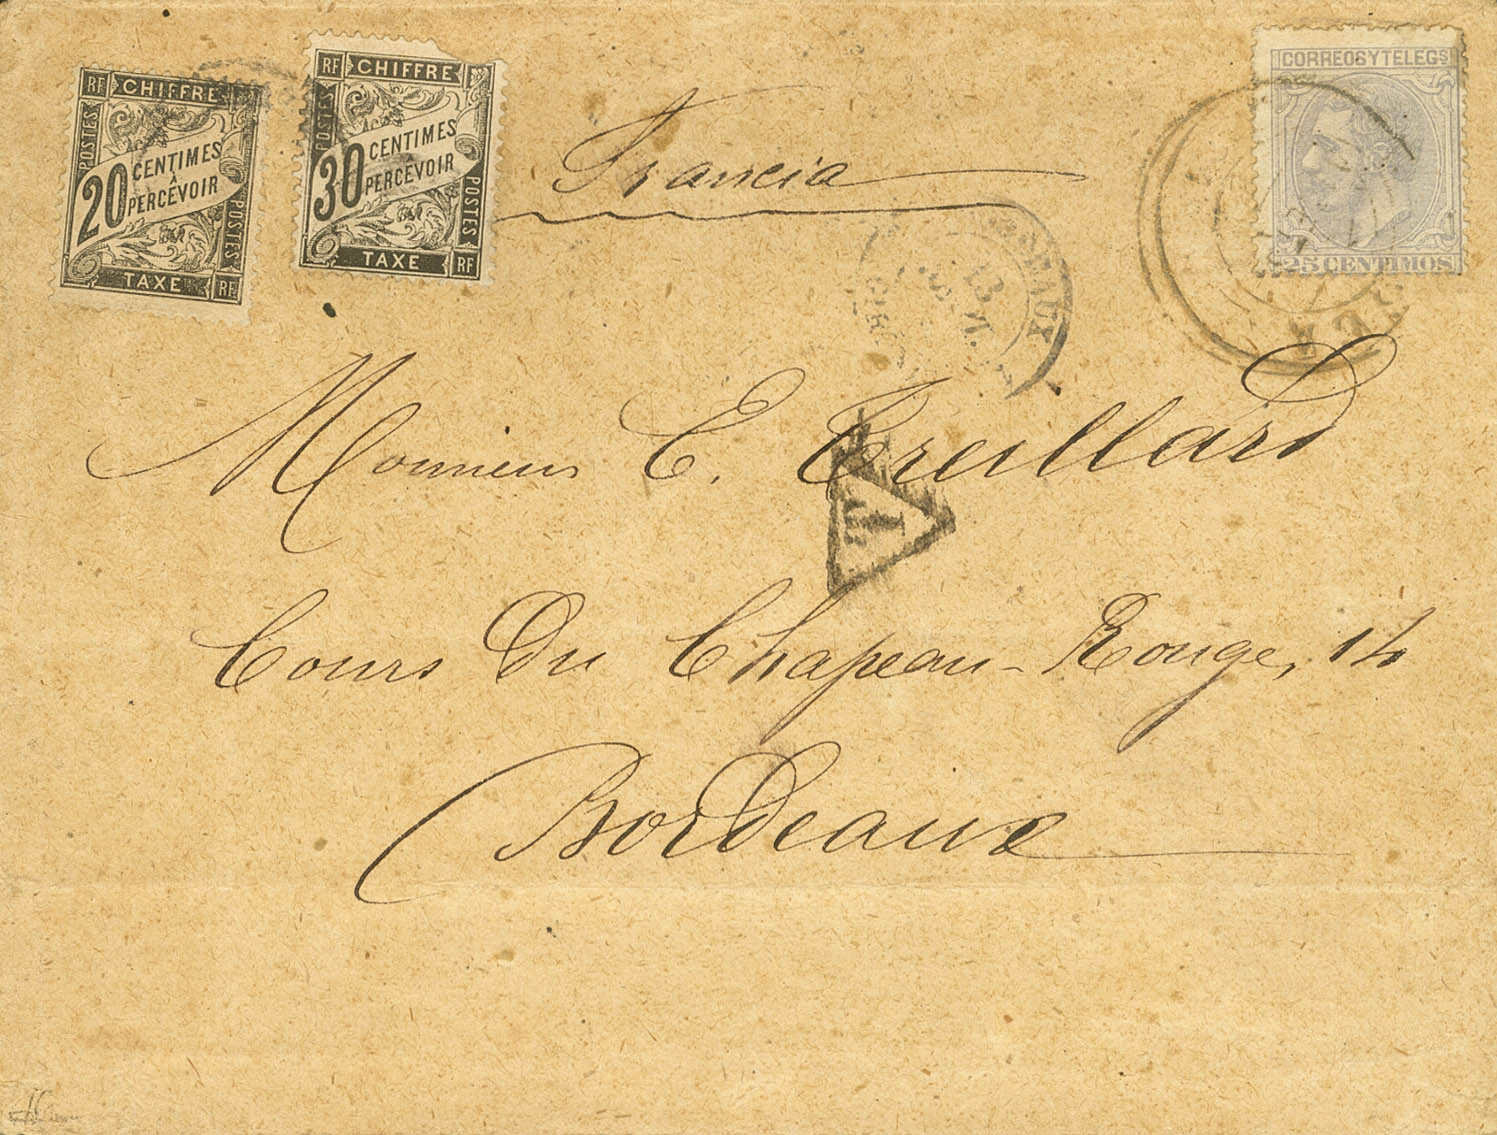 RF CHIFFRE
POSTES
20 CENTIMES
À
PERCEVOIR
POSTES
TAXE RF
RF CHIFFRE
POSTES
30 CENTIMES
À
PERCEVOIR
POSTES
TAXE RF
CORREOS Y TELEGS
25 CENTIMOS
Francia
13
T
Monsieur E. Treillard
Cours du Chapeau-Rouge, 14
Bordeaux